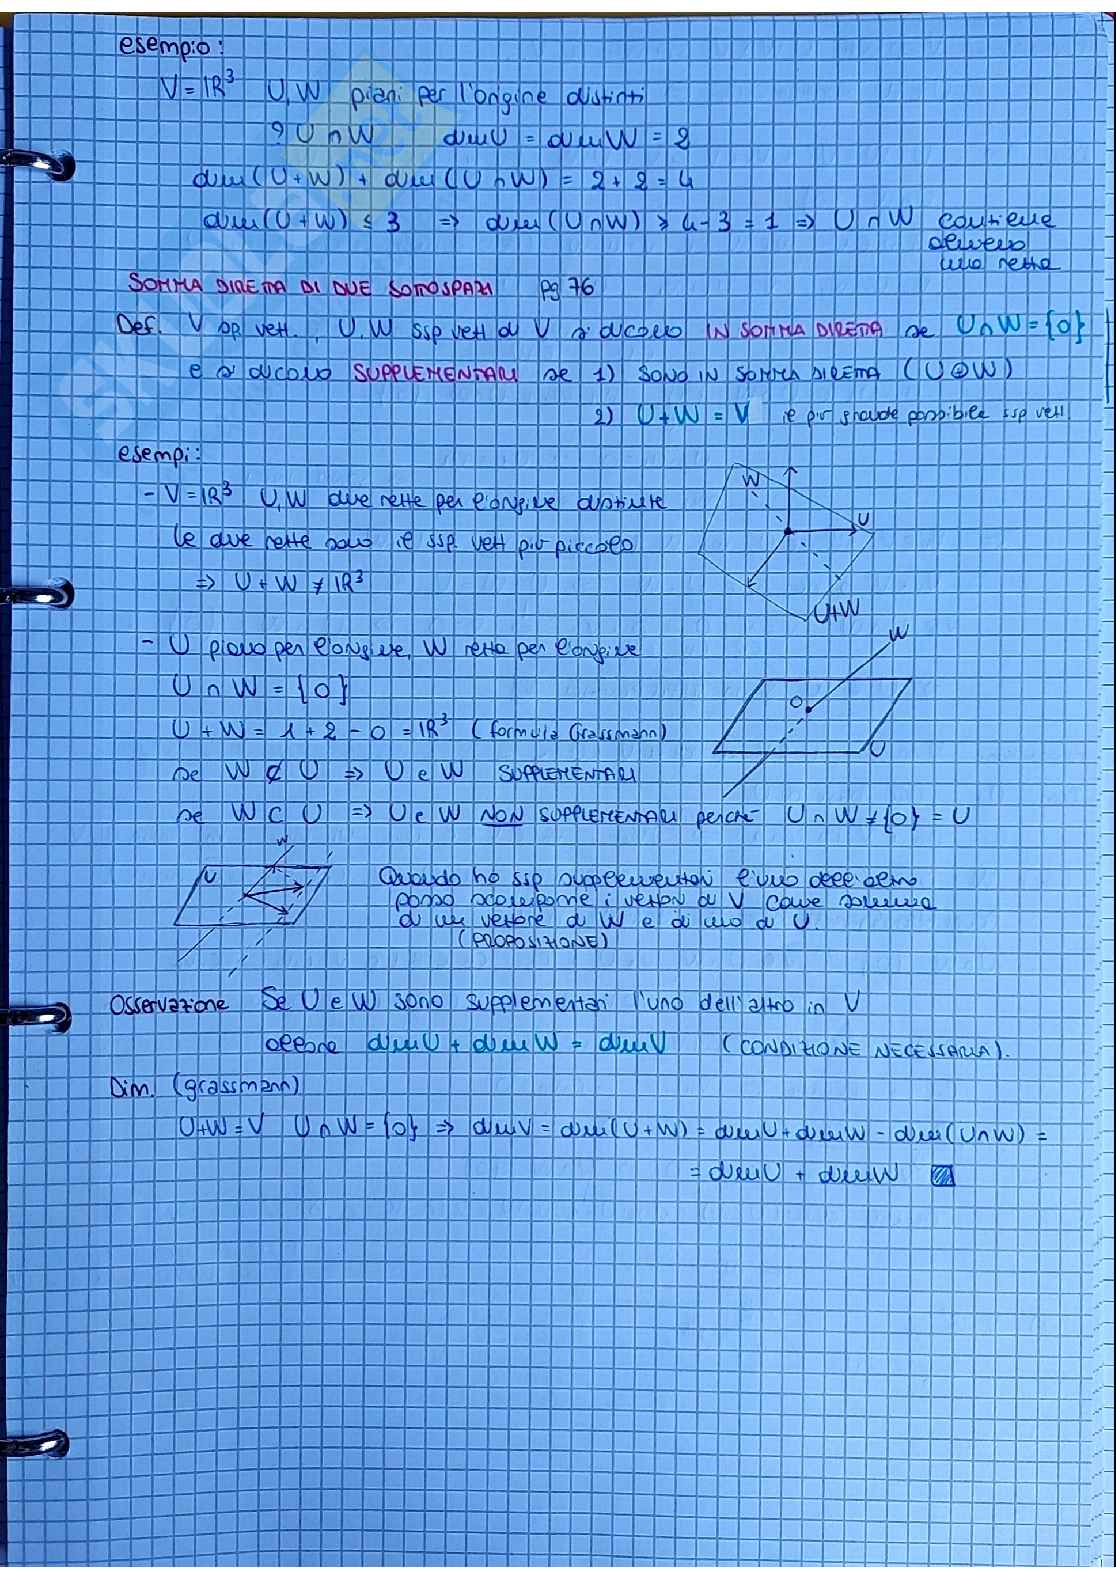 esempio:
V = ℝ³ U, W piani per l'origine distinti
? U ∩ W dim U = dim W = 2
dim (U + W) + dim (U ∩ W) = 2 + 2 = 4
dim (U + W) ≤ 3 ⇒ dim (U ∩ W) ≥ 4 - 3 = 1 ⇒ U ∩ W contiene
almeno
una retta
SOMMA DIRETTA DI DUE SOTTOSPAZI pg 76
Def. V sp vett., U, W ssp vett di V si dicono IN SOMMA DIRETTA se U ∩ W = {0}
e si dicono SUPPLEMENTARI se 1) SONO IN SOMMA DIRETTA (U ⊕ W)
2) U + W = V il più grande possibile ssp vett
esempi:
- V = ℝ³ U, W due rette per l'origine distinte
le due rette sono il ssp. vett più piccolo
⇒ U + W ≠ ℝ³
W
U
U+W
- U piano per l'origine, W retta per l'origine
U ∩ W = {0}
U + W = 1 + 2 - 0 = ℝ³ (formula Grassmann)
W
O
U
se W ⊄ U ⇒ U e W SUPPLEMENTARI
se W ⊂ U ⇒ U e W NON SUPPLEMENTARI perché U ∩ W ≠ {0} = U
W
U
Quando ho ssp supplementari l'uno dell'altro
posso scomporre i vettori di V come somma
di un vettore di W e di uno di U.
(PROPOSIZIONE)
Osservazione Se U e W sono supplementari l'uno dell'altro in V
allora dim U + dim W = dim V (CONDIZIONE NECESSARIA).
Dim. (grassmann)
U+W = V U ∩ W = {0} ⇒ dim V = dim (U + W) = dim U + dim W - dim (U ∩ W) =
= dim U + dim W